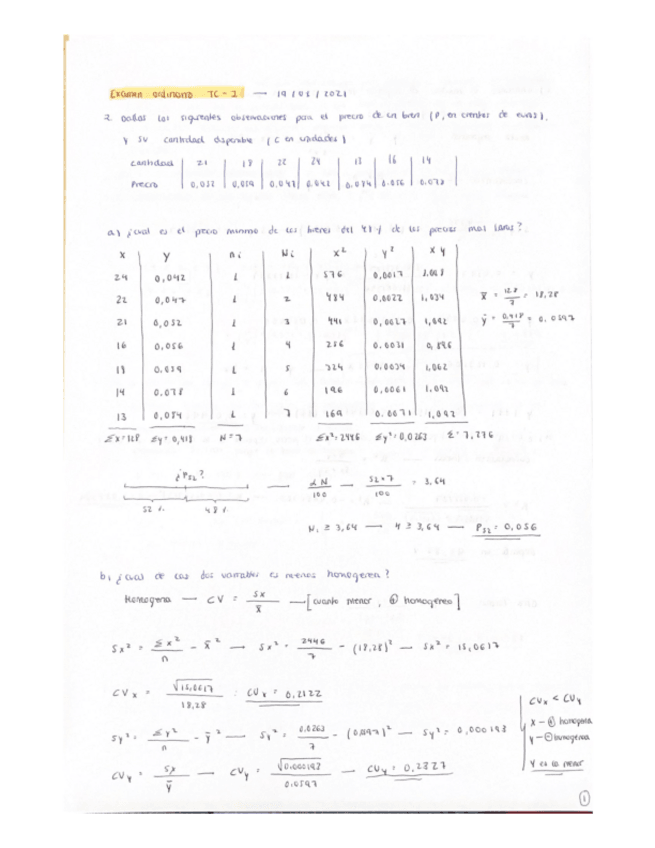 Examen ordinario TC-1 — 19/01/2021
2. Dadas las siguientes observaciones para el precio de un bien (P, en cientos de euros),
y su cantidad disponible (C en unidades)
cantidad | 21 | 18 | 22 | 24 | 13 | 16 | 14
Precio | 0,052 | 0,059 | 0,047 | 0,042 | 0,084 | 0.056 | 0.078
a) ¿cual es el precio minimo de los bienes del 48% de los precios mas caros?
X | Y | ni | Ni | X² | Y² | XY
24 | 0,042 | 1 | 1 | 576 | 0,0017 | 1.008
22 | 0,047 | 1 | 2 | 484 | 0,0022 | 1,034
21 | 0,052 | 1 | 3 | 441 | 0,0027 | 1,092
16 | 0,056 | 1 | 4 | 256 | 0.0031 | 0,896
18 | 0.059 | 1 | 5 | 324 | 0.0034 | 1,062
14 | 0.078 | 1 | 6 | 196 | 0,0061 | 1.092
13 | 0,084 | 1 | 7 | 169 | 0.0071 | 1,092
Σx=128 Σy=0,418 N=7 Σx²=2446 Σy²=0,0263 Σ=7,276
x̄ = 128/7 = 18,28
ȳ = 0,418/7 = 0,0597
¿P52? — αN/100 — 52·7/100 = 3,64
52 % 48 %
Ni ≥ 3,64 — 4 ≥ 3,64 — P52 = 0,056
b) ¿cual de las dos variables es menos homogenea?
Homogenea — CV = Sx/x̄ — [cuanto menor, ⊕ homogéneo]
Sx² = Σx²/n - x̄² — Sx² = 2446/7 - (18,28)² — Sx² = 15,0617
CVx = √15,0617/18,28 : CVx = 0,2122
Sy² = Σy²/n - ȳ² — Sy² = 0,0263/7 - (0,0597)² — Sy² = 0,000193
CVy = Sx/ȳ — CVy = √0.000193/0.0597 — CVy = 0,2327
CVx < CVy
X - ⊕ homogenea
Y - ⊖ homogenea
Y es la menor
1